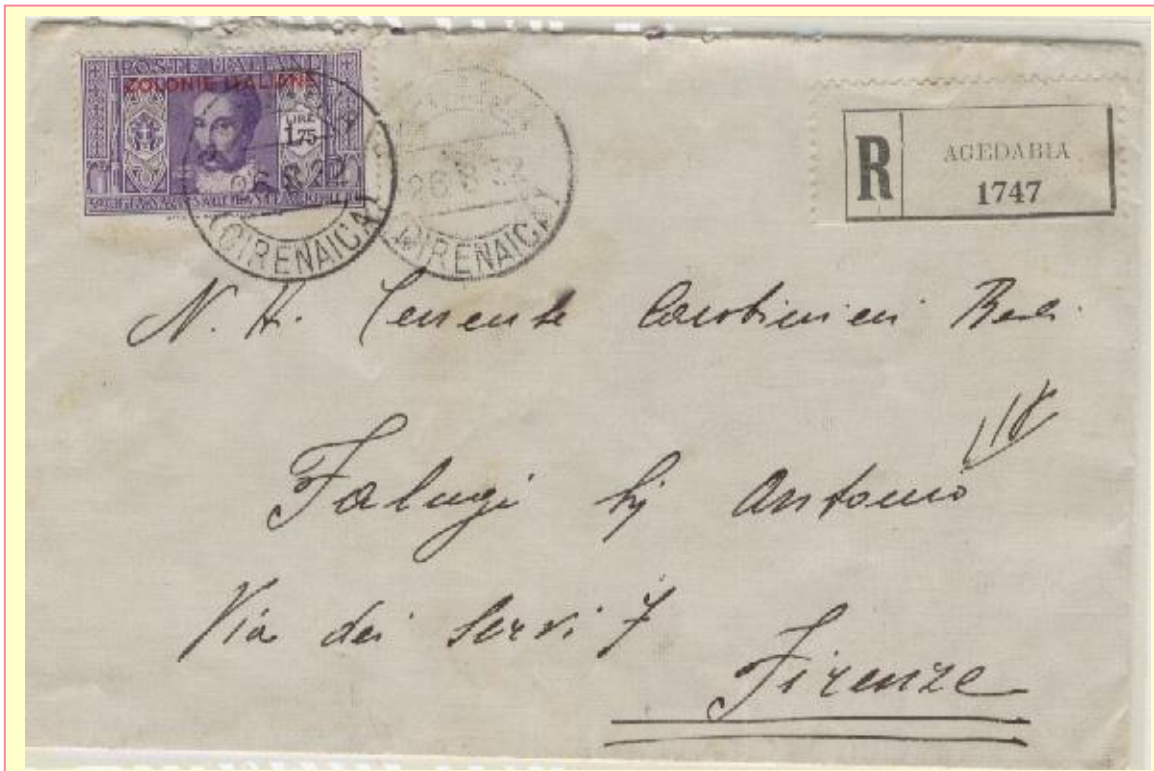 POSTE ITALIANE
COLONIE ITALIANE
LIRE
1.75
(CIRENAICA)
(CIRENAICA)
R
AGEDABIA
1747
N. H. Tenente Carabinieri Reali
Falugi Antonio
Via dei Servi 7
Firenze